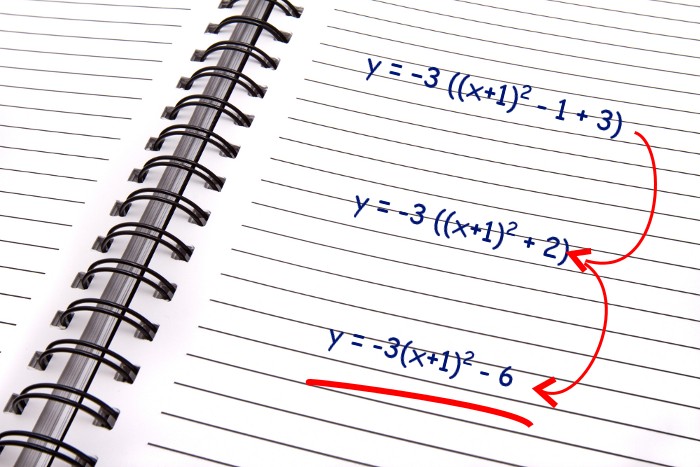 y = -3 ((x+1)² - 1 + 3)
y = -3 ((x+1)² + 2)
y = -3(x+1)² - 6